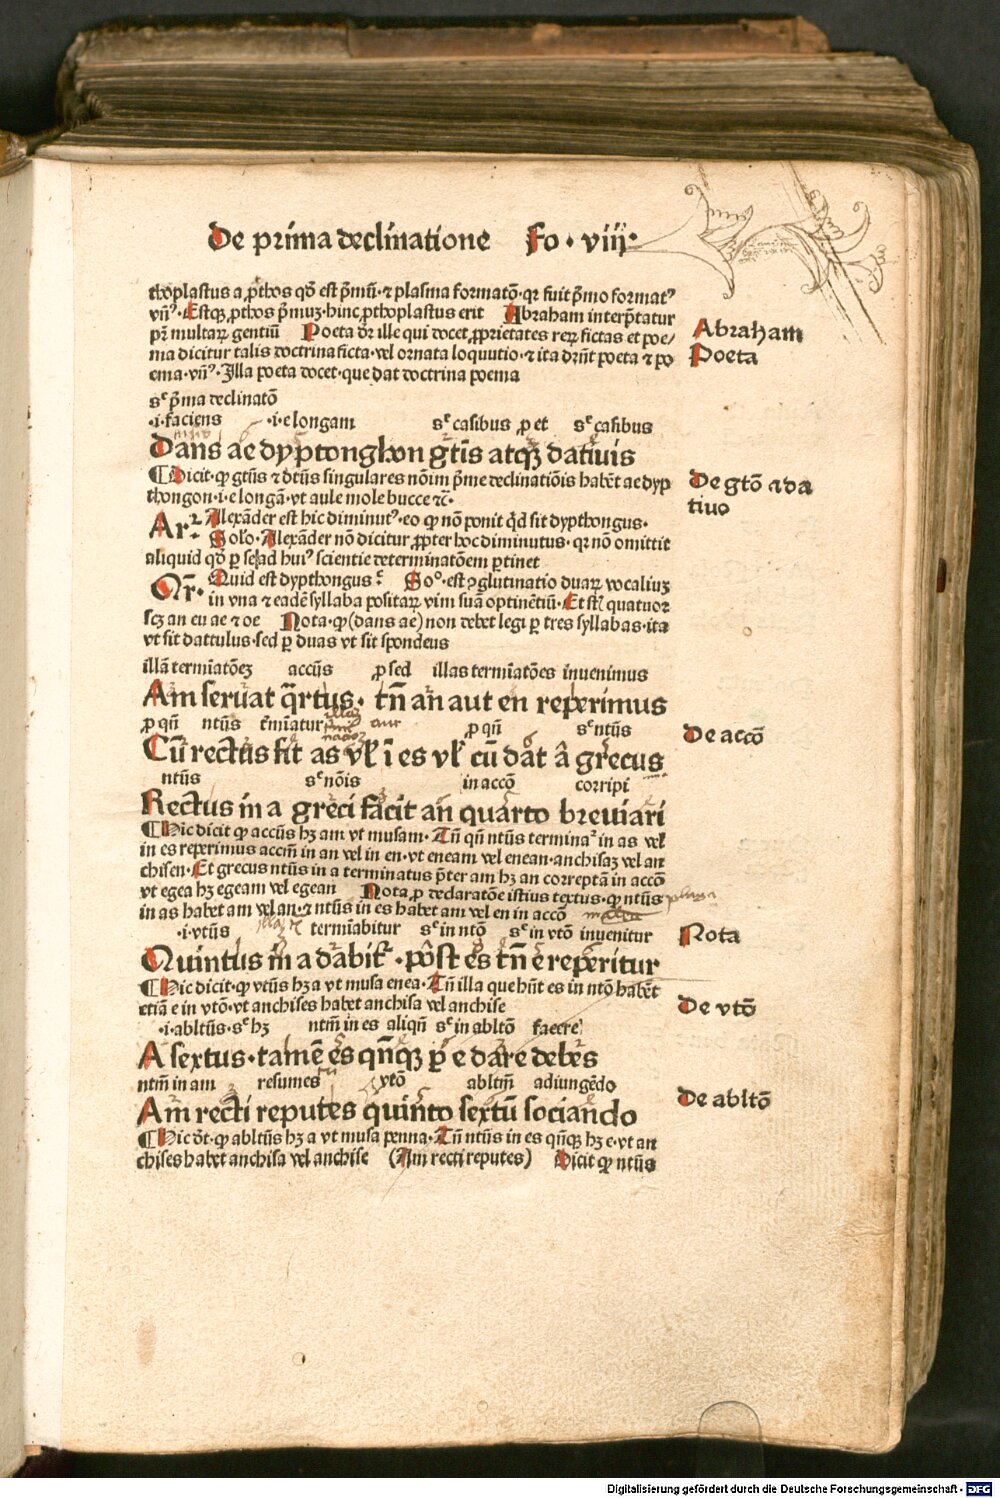 De prima declinatione Fo . viij.
thoplastus a ꝓthos qd̄ est p̄mū ⁊ plasma formatō qr fuit p̄mo format⁹
vn̄⁹. Estqꝫ ꝓthos p̄muꝫ hinc ꝓthoplastus erit Abraham interp̄tatur
pr̄ multaꝝ gentiū Poeta dr̄ ille qui docet ꝓprietates reꝝ fictas et poe/
Abraham
ma dicitur talis doctrina ficta vel ornata loquutio ⁊ ita dr̄nt poeta ⁊ po
Poeta
ema vn̄⁹. Illa poeta docet que dat doctrina poema
sᶜ p̄ma declinatō
.i. faciens .i. e longam sᶜ casibus ꝓ et sᶜ casibus
Dans ae dyptonghon gtīs atqꝫ datiuis
¶ Dicit ꝙ gtūs ⁊ dtūs singulares nōīm p̄me declinatiōis habēt ae dyp
De gtō ⁊ da
thongon .i. e longā vt aule mole bucce ⁊c̄.
tiuo
Ar². Alexāder est hic diminut⁹. eo ꝙ nō ponit qd̄ sit dypthongus.
Solo. Alexāder nō dicitur ꝓpter hoc diminutus qr nō omittit
aliquid qd̄ ꝑ se ad hui⁹ scientie determinatōem ꝑtinet
Qr̄. Quid est dypthongus Soº. est ꝯglutinatio duaꝝ vocaliuꝫ
in vna ⁊ eadē syllaba positaꝝ vim suā optinētiū. Et st̄ quatuor
scꝫ an eu ae ⁊ oe Nota ꝙ (dans ae) non debet legi ꝑ tres syllabas ita
vt sit dattulus sed ꝑ duas vt sit spondeus
illā termiatōeꝫ accūs ꝓ sed illas termīatōes inuenimus
Am seruat q̄rtus. tn̄ an̄ aut en reperimus
ꝓ qn̄ ntūs t̄mīatur ꝓ qn̄ sᶜ ntūs
De accō
Cū rectus fit as vl̄ ī es vl̄ cū dat ā grecus
ntūs sᶜ nōis in accō corripi
Rectus in a greci facit an quarto breuiari
¶ Hic dicit ꝙ accūs hꝫ am vt musam. Tn̄ qn̄ ntūs termina² in as vel
in es reperimus accm̄ in an vel in en vt eneam vel enean anchisaꝫ vel an
chisen. Et grecus ntūs in a terminatus p̄ter am hꝫ an correptā in accō
vt egea hꝫ egeam vel egean Nota ꝓ declaratōe istius textus ꝙ ntūs
in as habet am vel an ⁊ ntūs in es habet am vel en in accō
.i. vtūs termīabitur sᶜ in ntō sᶜ in vtō inuenitur
Nota
Quintus in a dabit². pōst es tn̄ e reperitur
¶ Hic dicit ꝙ vtūs hꝫ a vt musa enea. Tn̄ illa que hn̄t es in ntō habēt
De vtō
etiā e in vtō vt anchises habet anchisa vel anchise
.i. abltūs sᶜ hꝫ ntm̄ in es aliqn̄ sᶜ in abltō facere
A sextus tamē es qn̄qꝫ ꝑ e dare debes
ntm̄ in am resumes vtō abltm̄ adiungēdo
De abltō
Am recti reputes quinto sextū sociando
¶ Hic dt̄ ꝙ abltūs hꝫ a vt musa penna. Tn̄ ntūs in es qn̄qꝫ hꝫ e vt an
chises habet anchisa vel anchise (Am recti reputes) Dicit ꝙ ntūs
Digitalisierung gefördert durch die Deutsche Forschungsgemeinschaft - DFG